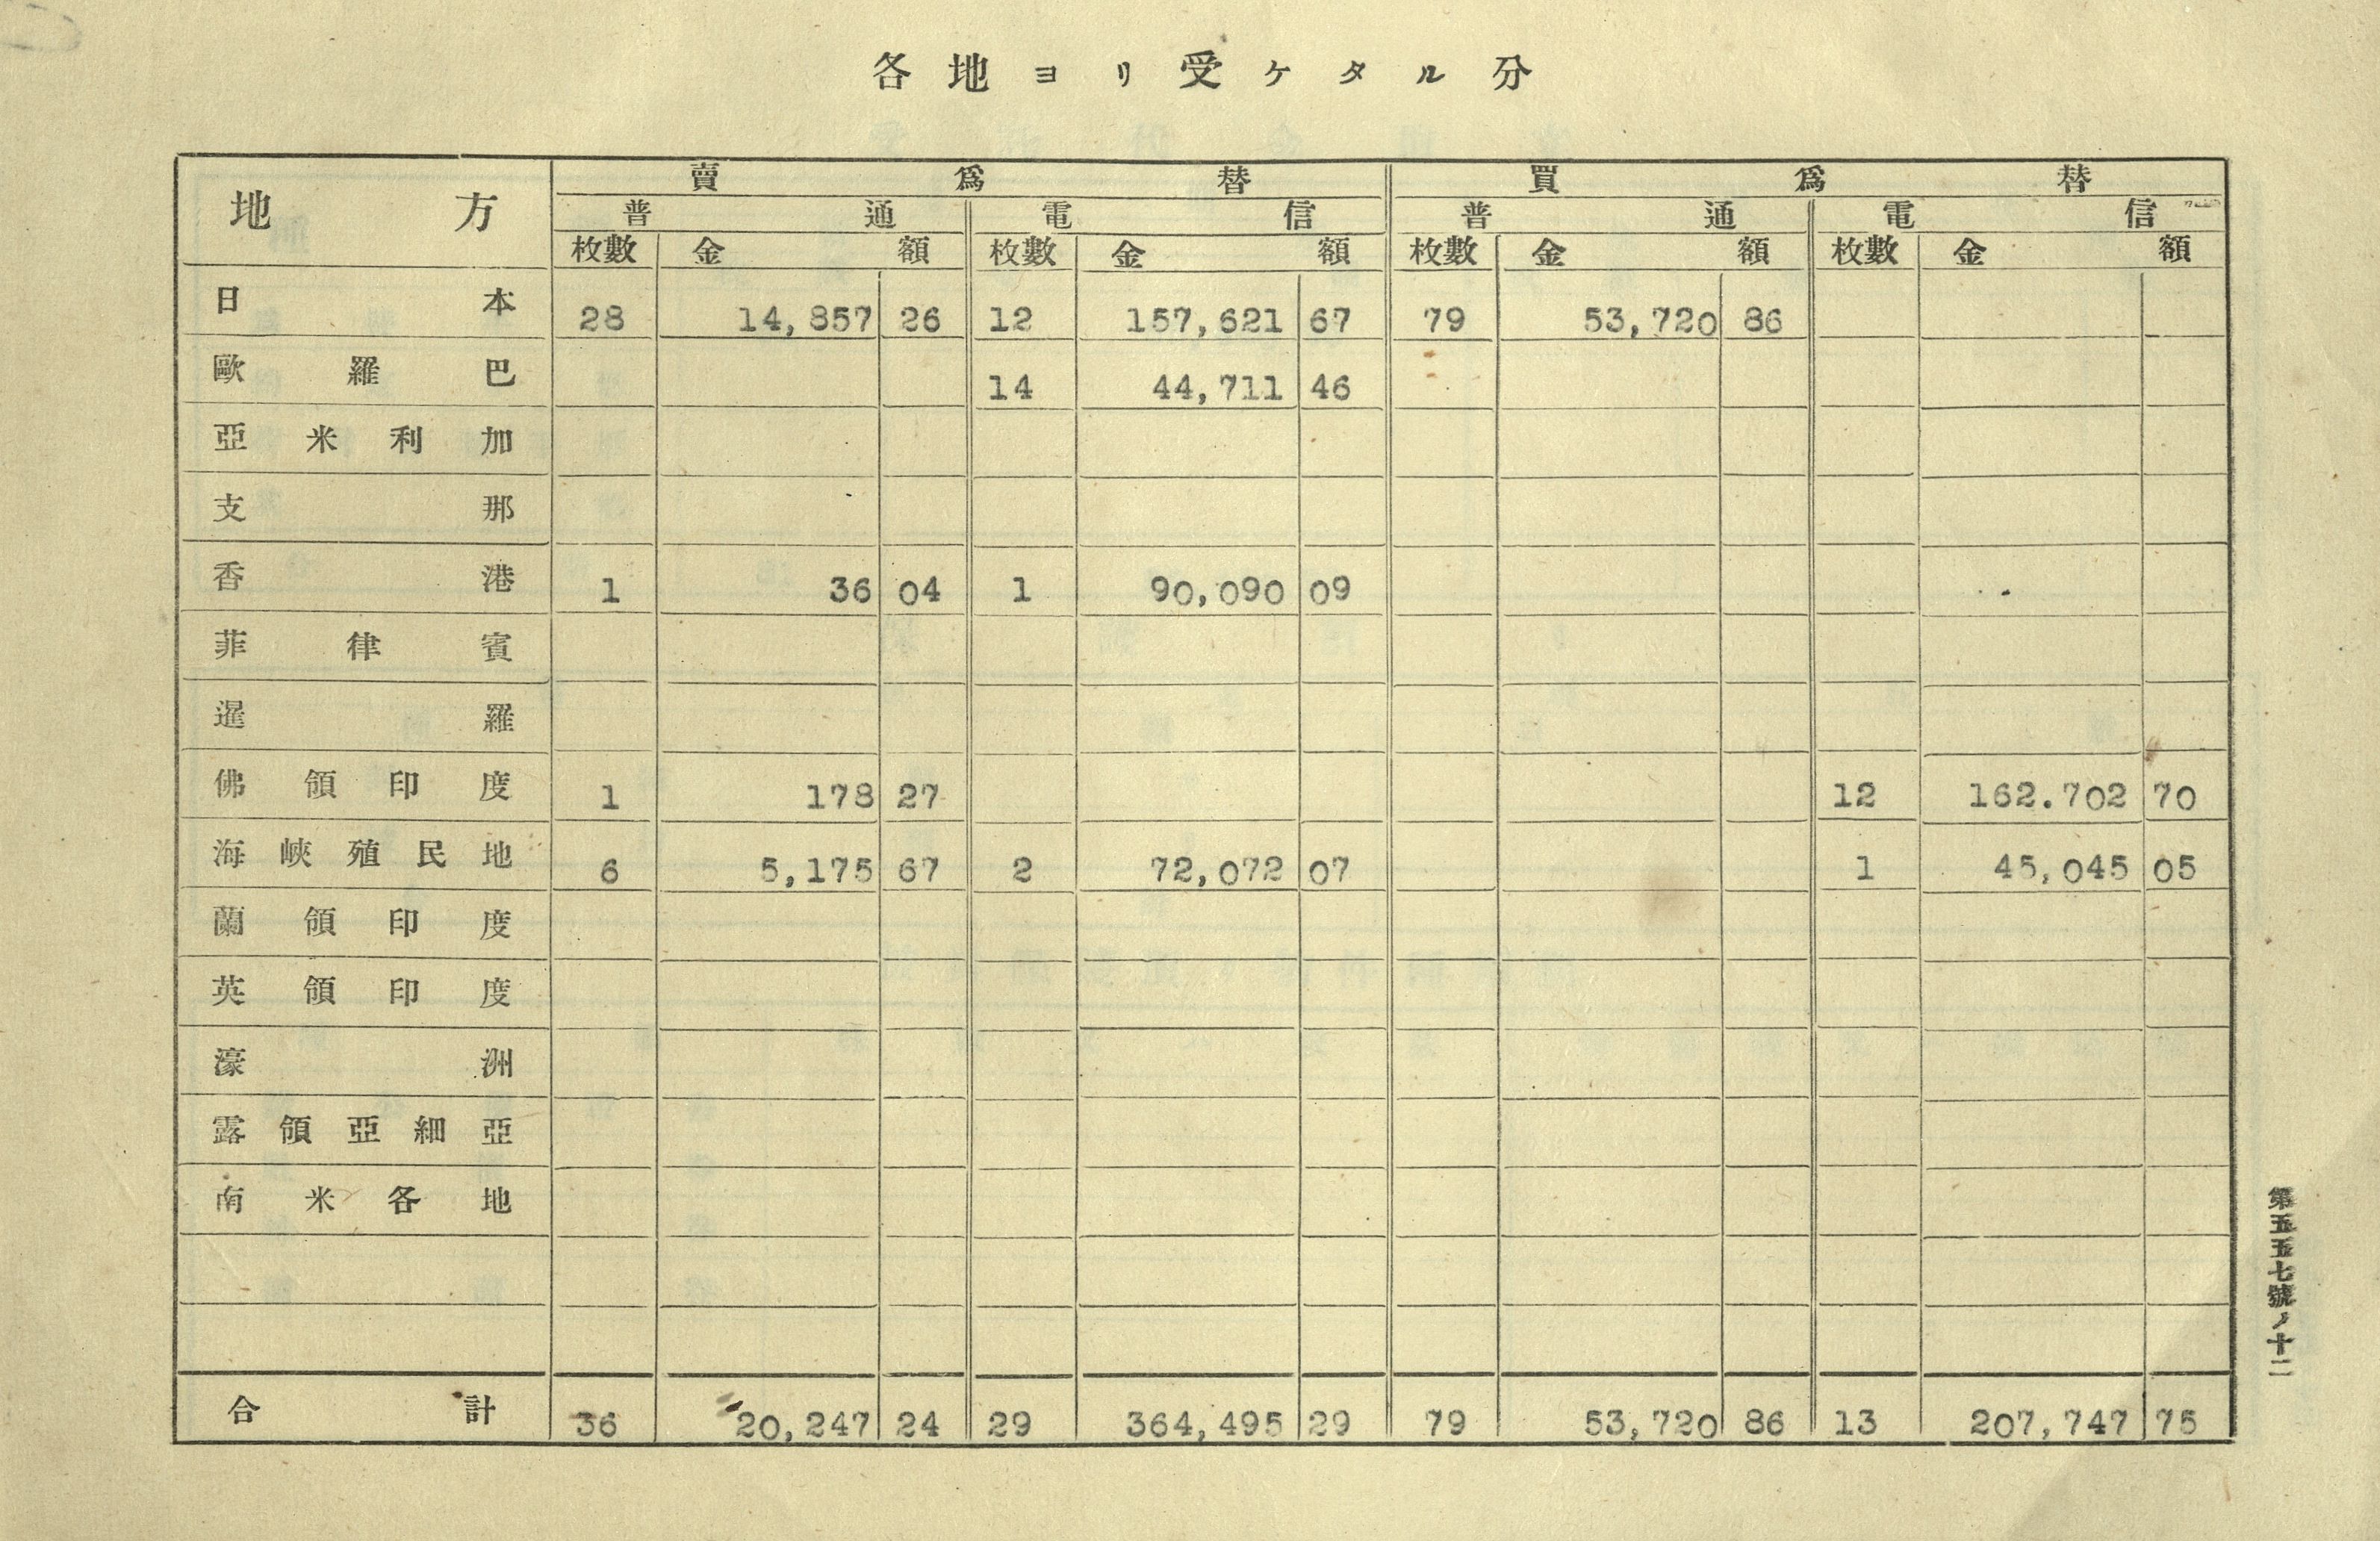 各地ヨリ受ケタル分
地方 賣爲替 買爲替
普通 電信 普通 電信
枚數 金額 枚數 金額 枚數 金額 枚數 金額
日本 28 14,857 26 12 157,621 67 79 53,720 86
歐羅巴 14 44,711 46
亞米利加
支那
香港 1 36 04 1 90,090 09
菲律賓
暹羅
佛領印度 1 178 27 12 162.702 70
海峽殖民地 6 5,175 67 2 72,072 07 1 45,045 05
蘭領印度
英領印度
濠洲
露領亞細亞
南米各地
合計 36 20,247 24 29 364,495 29 79 53,720 86 13 207,747 75
第五五七號ノ十二